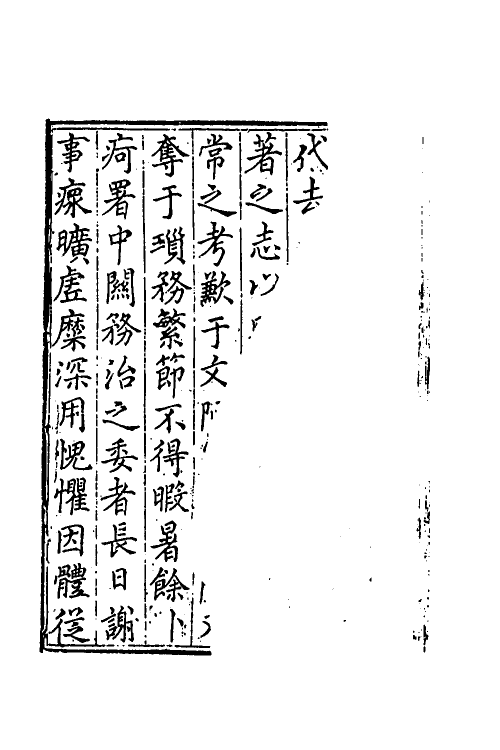 代去
著之志
常之考歉于文
奪于瑣務繁節不得暇暑餘卜
疴署中闗務治之委者長日謝
事瘝曠虗糜深用愧懼因體從